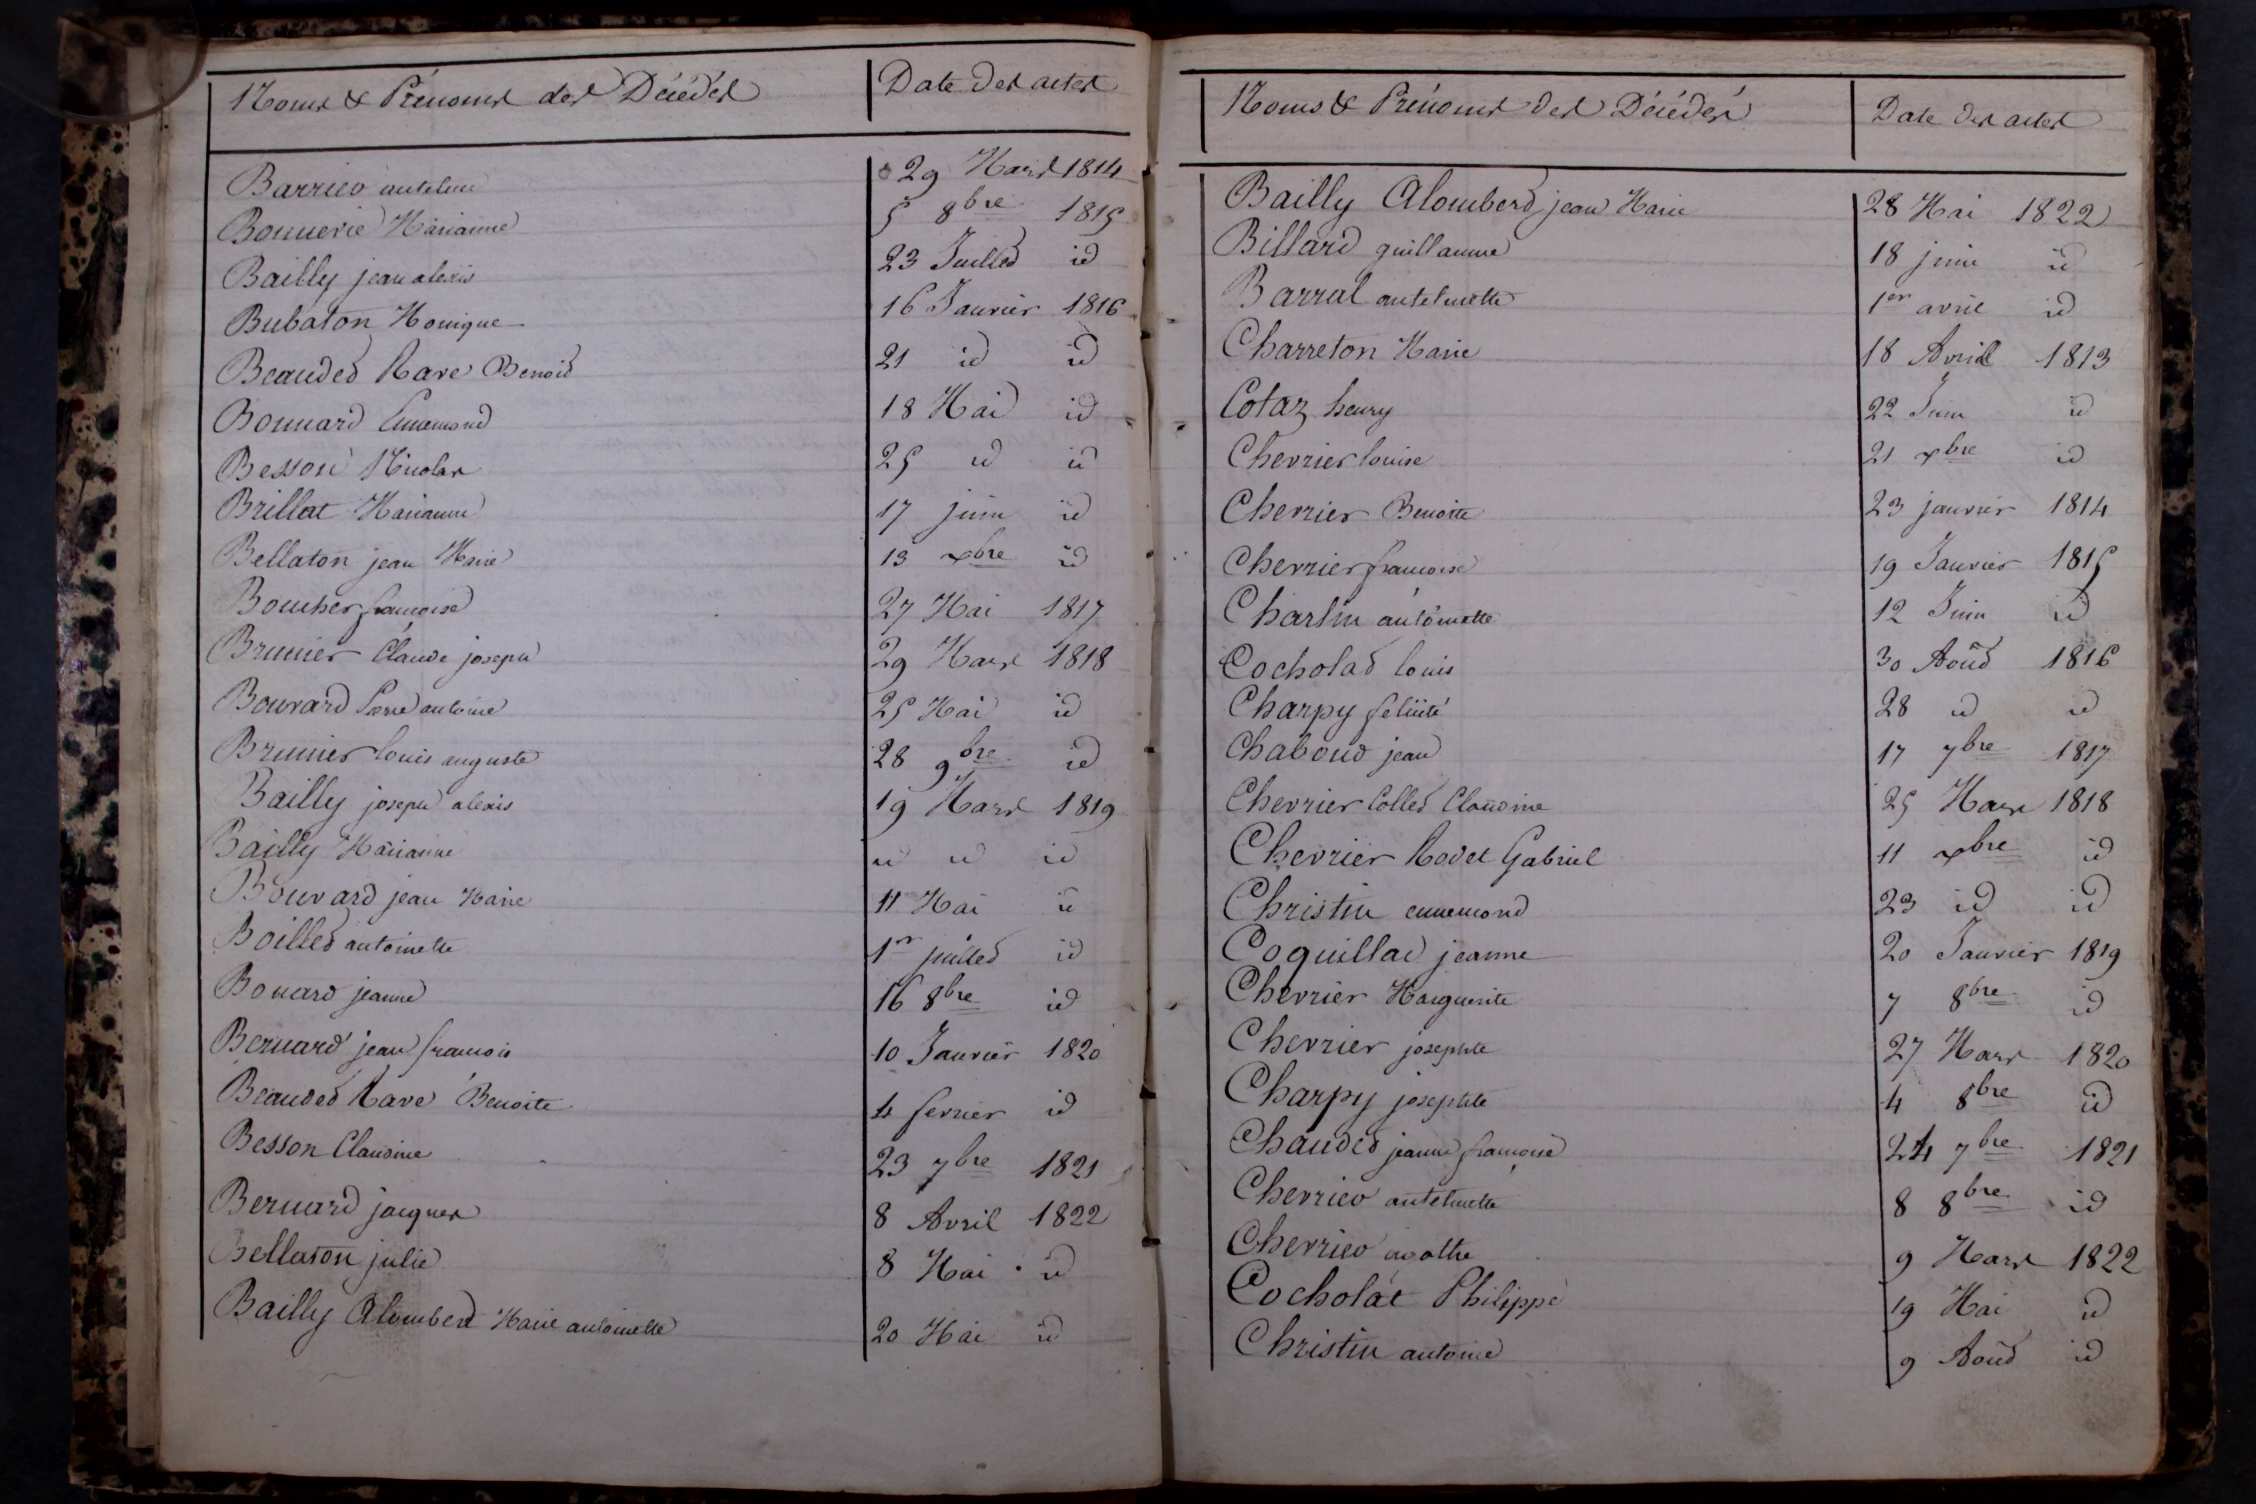 Noms & Prénoms des Décédés
Date des actes
Barrico antelme 29 Mars 1814
Bonnerie Marianne 5 8bre 1815
Bailly jean alexis 23 Juillet id
Bubaton Monique 16 Janvier 1816
Beaudet Rave Benoit 21 id id
Bonnard Ennemond 18 Mai id
Besson Nicolas 25 id id
Brillat Marianne 17 juin id
Bellaton jean Marie 13 xbre id
Boucher francoise 27 Mai 1817
Brunier Claude joseph 29 Mars 1818
Bouvard Pierre antoine 25 Mai id
Brunier louis auguste 28 9bre id
Bailly joseph alexis 19 Mars 1819
Bailly Marianne id id id
Bouvard jean Marie 11 Mai id
Boillet antoinette 1er juillet id
Bonard jeanne 16 8bre id
Bernard jean francois 10 Janvier 1820
Beaudet Rave Benoite 4 fevrier id
Besson Claudine 23 7bre 1821
Bernard jacques 8 Avril 1822
Bellaton julie 8 Mai id
Bailly Alombert Marie antoinette 20 Mai id
Noms & Prénoms des Décédés
Date des actes
Bailly Alombert jean Marie 28 Mai 1822
Billard guillaume 18 juin id
Barral antelmette 1er avril id
Charreton Marie 18 Avril 1813
Cotaz henry 22 Juin id
Chevrier louise 21 xbre id
Chevrier Benoite 23 janvier 1814
Chevrier francoise 19 Janvier 1815
Charlin antoinette 12 Juin id
Cocholat louis 30 Août 1816
Charpy felicité 28 id id
Chaboud jean 17 7bre 1817
Chevrier Collet Claudine 25 Mars 1818
Chevrier Rodet Gabriel 11 xbre id
Christin ennemond 23 id id
Coquillat jeanne 20 Janvier 1819
Chevrier Marguerite 7 8bre id
Chevrier josephte 27 Mars 1820
Charpy josephte 4 8bre id
Chaudet jeanne francoise 24 7bre 1821
Chevrier antelmette 8 8bre id
Chevrier agathe 9 Mars 1822
Cocholat Philippe 19 Mai id
Christin antoine 9 Août id